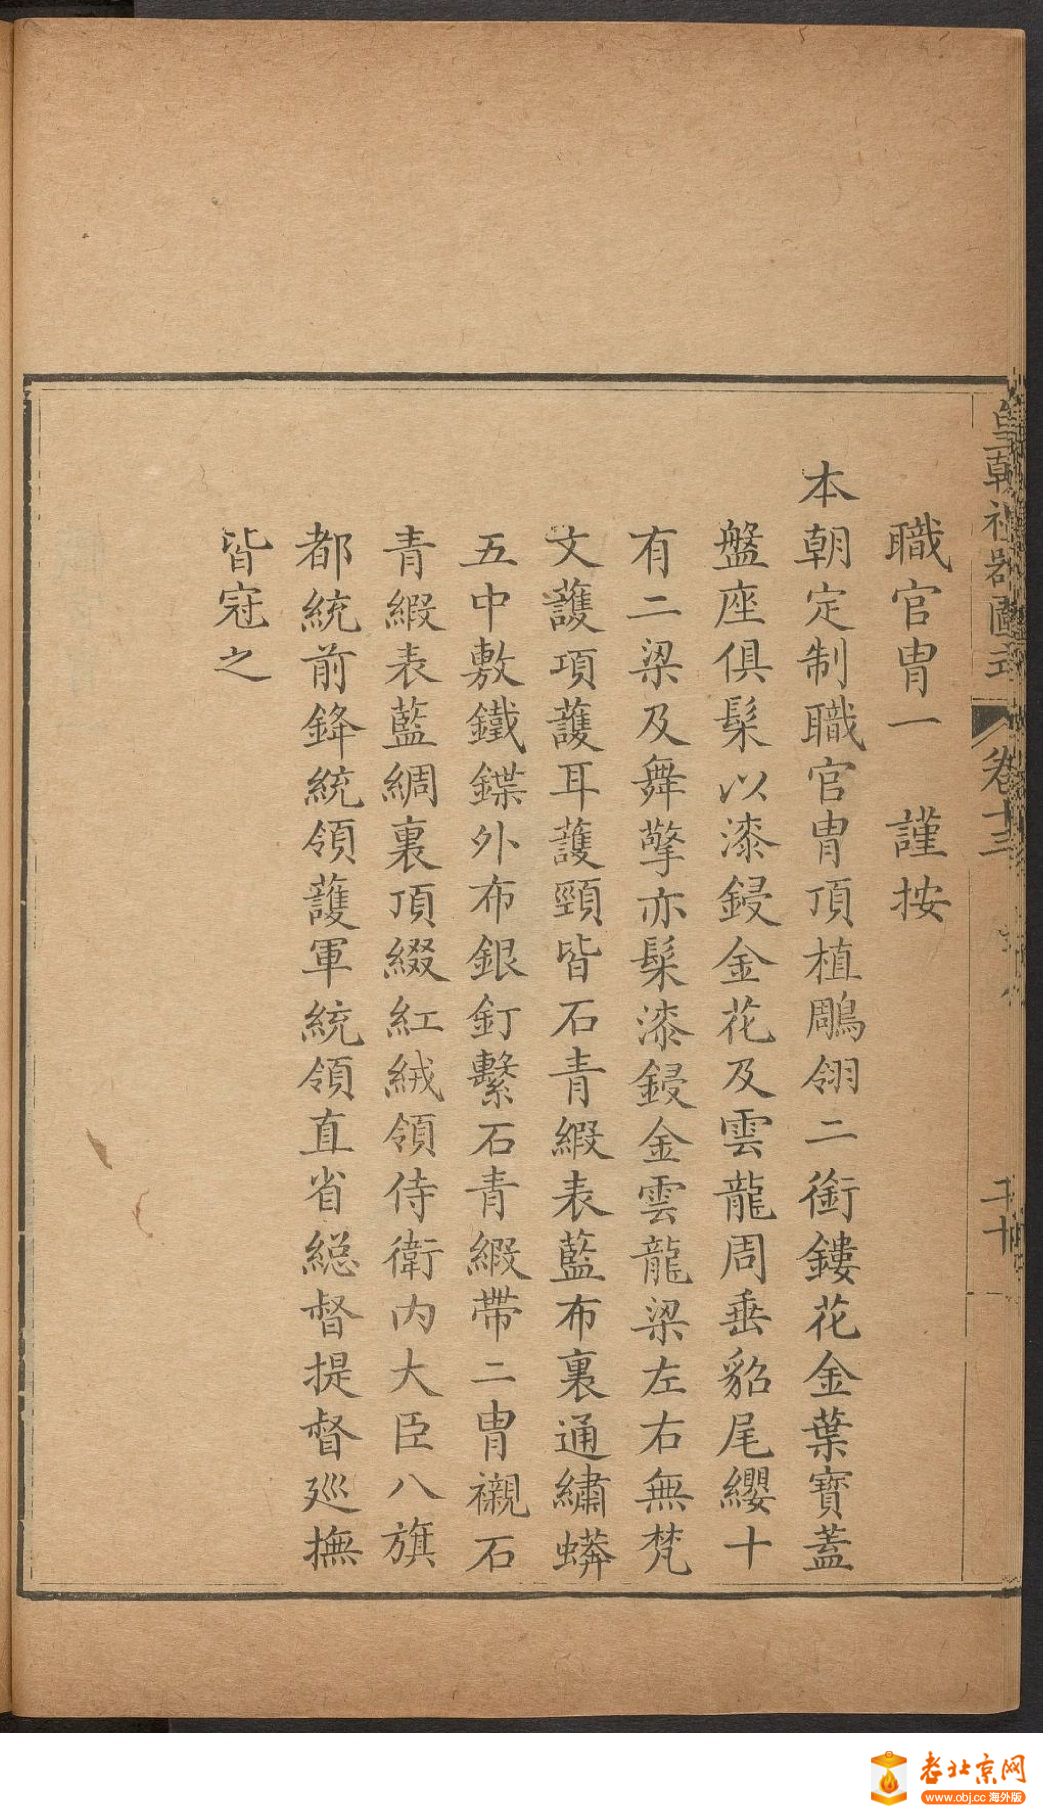 職官冑一　謹按
本朝定制職官冑頂植鵰翎二銜鏤花金葉寶蓋
盤座俱髹以漆鋄金花及雲龍周垂貂尾纓十
有二梁及舞擎亦髹漆鋄金雲龍梁左右無梵
文護項護耳護頸皆石青緞表藍布裏通繡蟒
五中敷鐵鍱外布銀釘繫石青緞帶二冑襯石
青緞表藍綢裏頂綴紅絨領侍衛內大臣八旗
都統前鋒統領護軍統領直省總督提督巡撫
皆冠之
皇朝禮器圖式
卷十三
老北京网
www.obj.cc 海外版